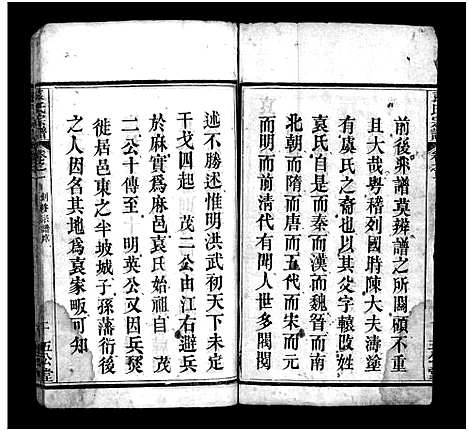 前後飛譜莫辨譜之所關顧不重
且大哉粤稽列國時陳大夫濤塗
有虞氏之裔也以其父字轅敗袿
袁氏自是而秦而漢而魏晉而南
北朝而隋而唐而五代而宋而元
而明而前清代有聞人世多閥閱
述不勝述惟明洪武初天下未定
干戈四起 茂二公由江右避兵
於麻實爲麻邑袁氏始祖自 茂
二公十傳至 明英公又因兵燹
徙居邑東之半坡城子孫蕃衍後
之人因名其地爲袁家畈可知
袁氏宗譜
卷之一
創修宗譜序
五公堂